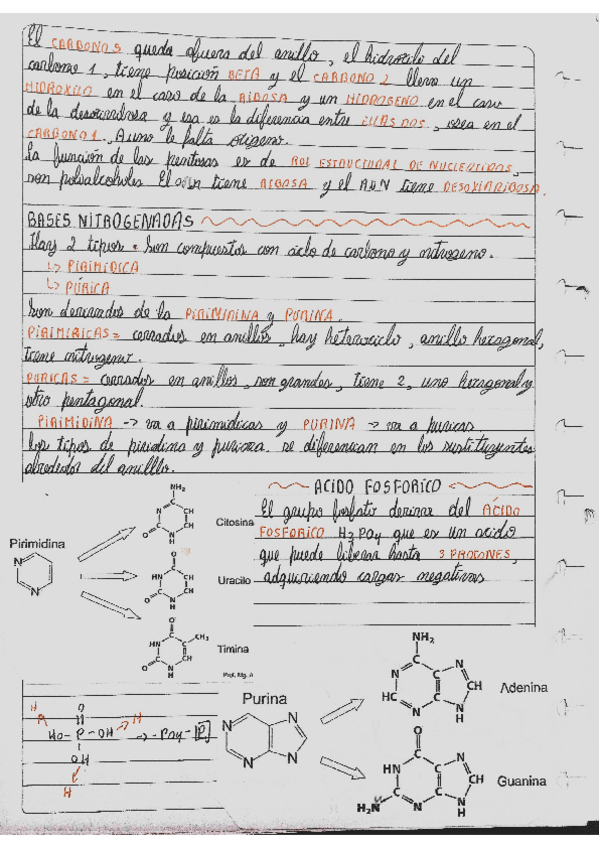 El CARBONO 5 queda afuera del anillo, el hidroxilo del
carbono 1, tiene posicion BETA y el CARBONO 2 lleva un
HIDROXILO en el caso de la RIBOSA y un HIDROGENO en el caso
de la desoxirribosa y esa es la diferencia entre ELLAS DOS, osea en el
CARBONO 1. A uno le falta oxigeno.
La función de las pentosas es de ROL ESTRUCTURAL DE NUCLEOTIDOS,
son polialcoholes. El tiene RIBOSA y el ADN tiene DESOXIARIBOSA.
BASES NITROGENADAS
Hay 2 tipos • Son compuestos con ciclo de carbono y nitrogeno.
↳ PIRIMIDICA
↳ PÚRICA
Son derivados de la PIRIMIDINA y PURINA.
PIRIMIRICAS = cerrados en anillos, hay heterociclo, anillo hexagonal,
tiene nitrogeno.
PURICAS = cerrados en anillos, son grandes, tiene 2, uno hexagonal y
otro pentagonal.
PIRIMIDINA → va a pirimidicas y PURINA → va a puricas.
Los tipos de y se diferencian en los sustituyentes
alrededor del anilllo.
ACIDO FOSFORICO
El grupo fosfato deriva del ÁCIDO
FOSFORICO H3PO4 que es un acido
que puede liberar hasta 3 PROTONES,
adquiriendo cargas negativas
Pirimidina
N
N
NH2
C
N
CH
C
CH
O
N
H
Citosina
O
C
HN
CH
C
CH
O
N
H
Uracilo
O
C
CH3
HN
C
C
CH
O
N
H
Timina
Prof. Mg. A
H
O
H
HO-P-OH
→ -PO4- P
OH
H
Purina
N
N
N
N
H
NH2
C
N
C
N
CH
HC
C
N
N
H
Adenina
O
C
HN
C
N
CH
H2N
C
C
N
N
H
Guanina